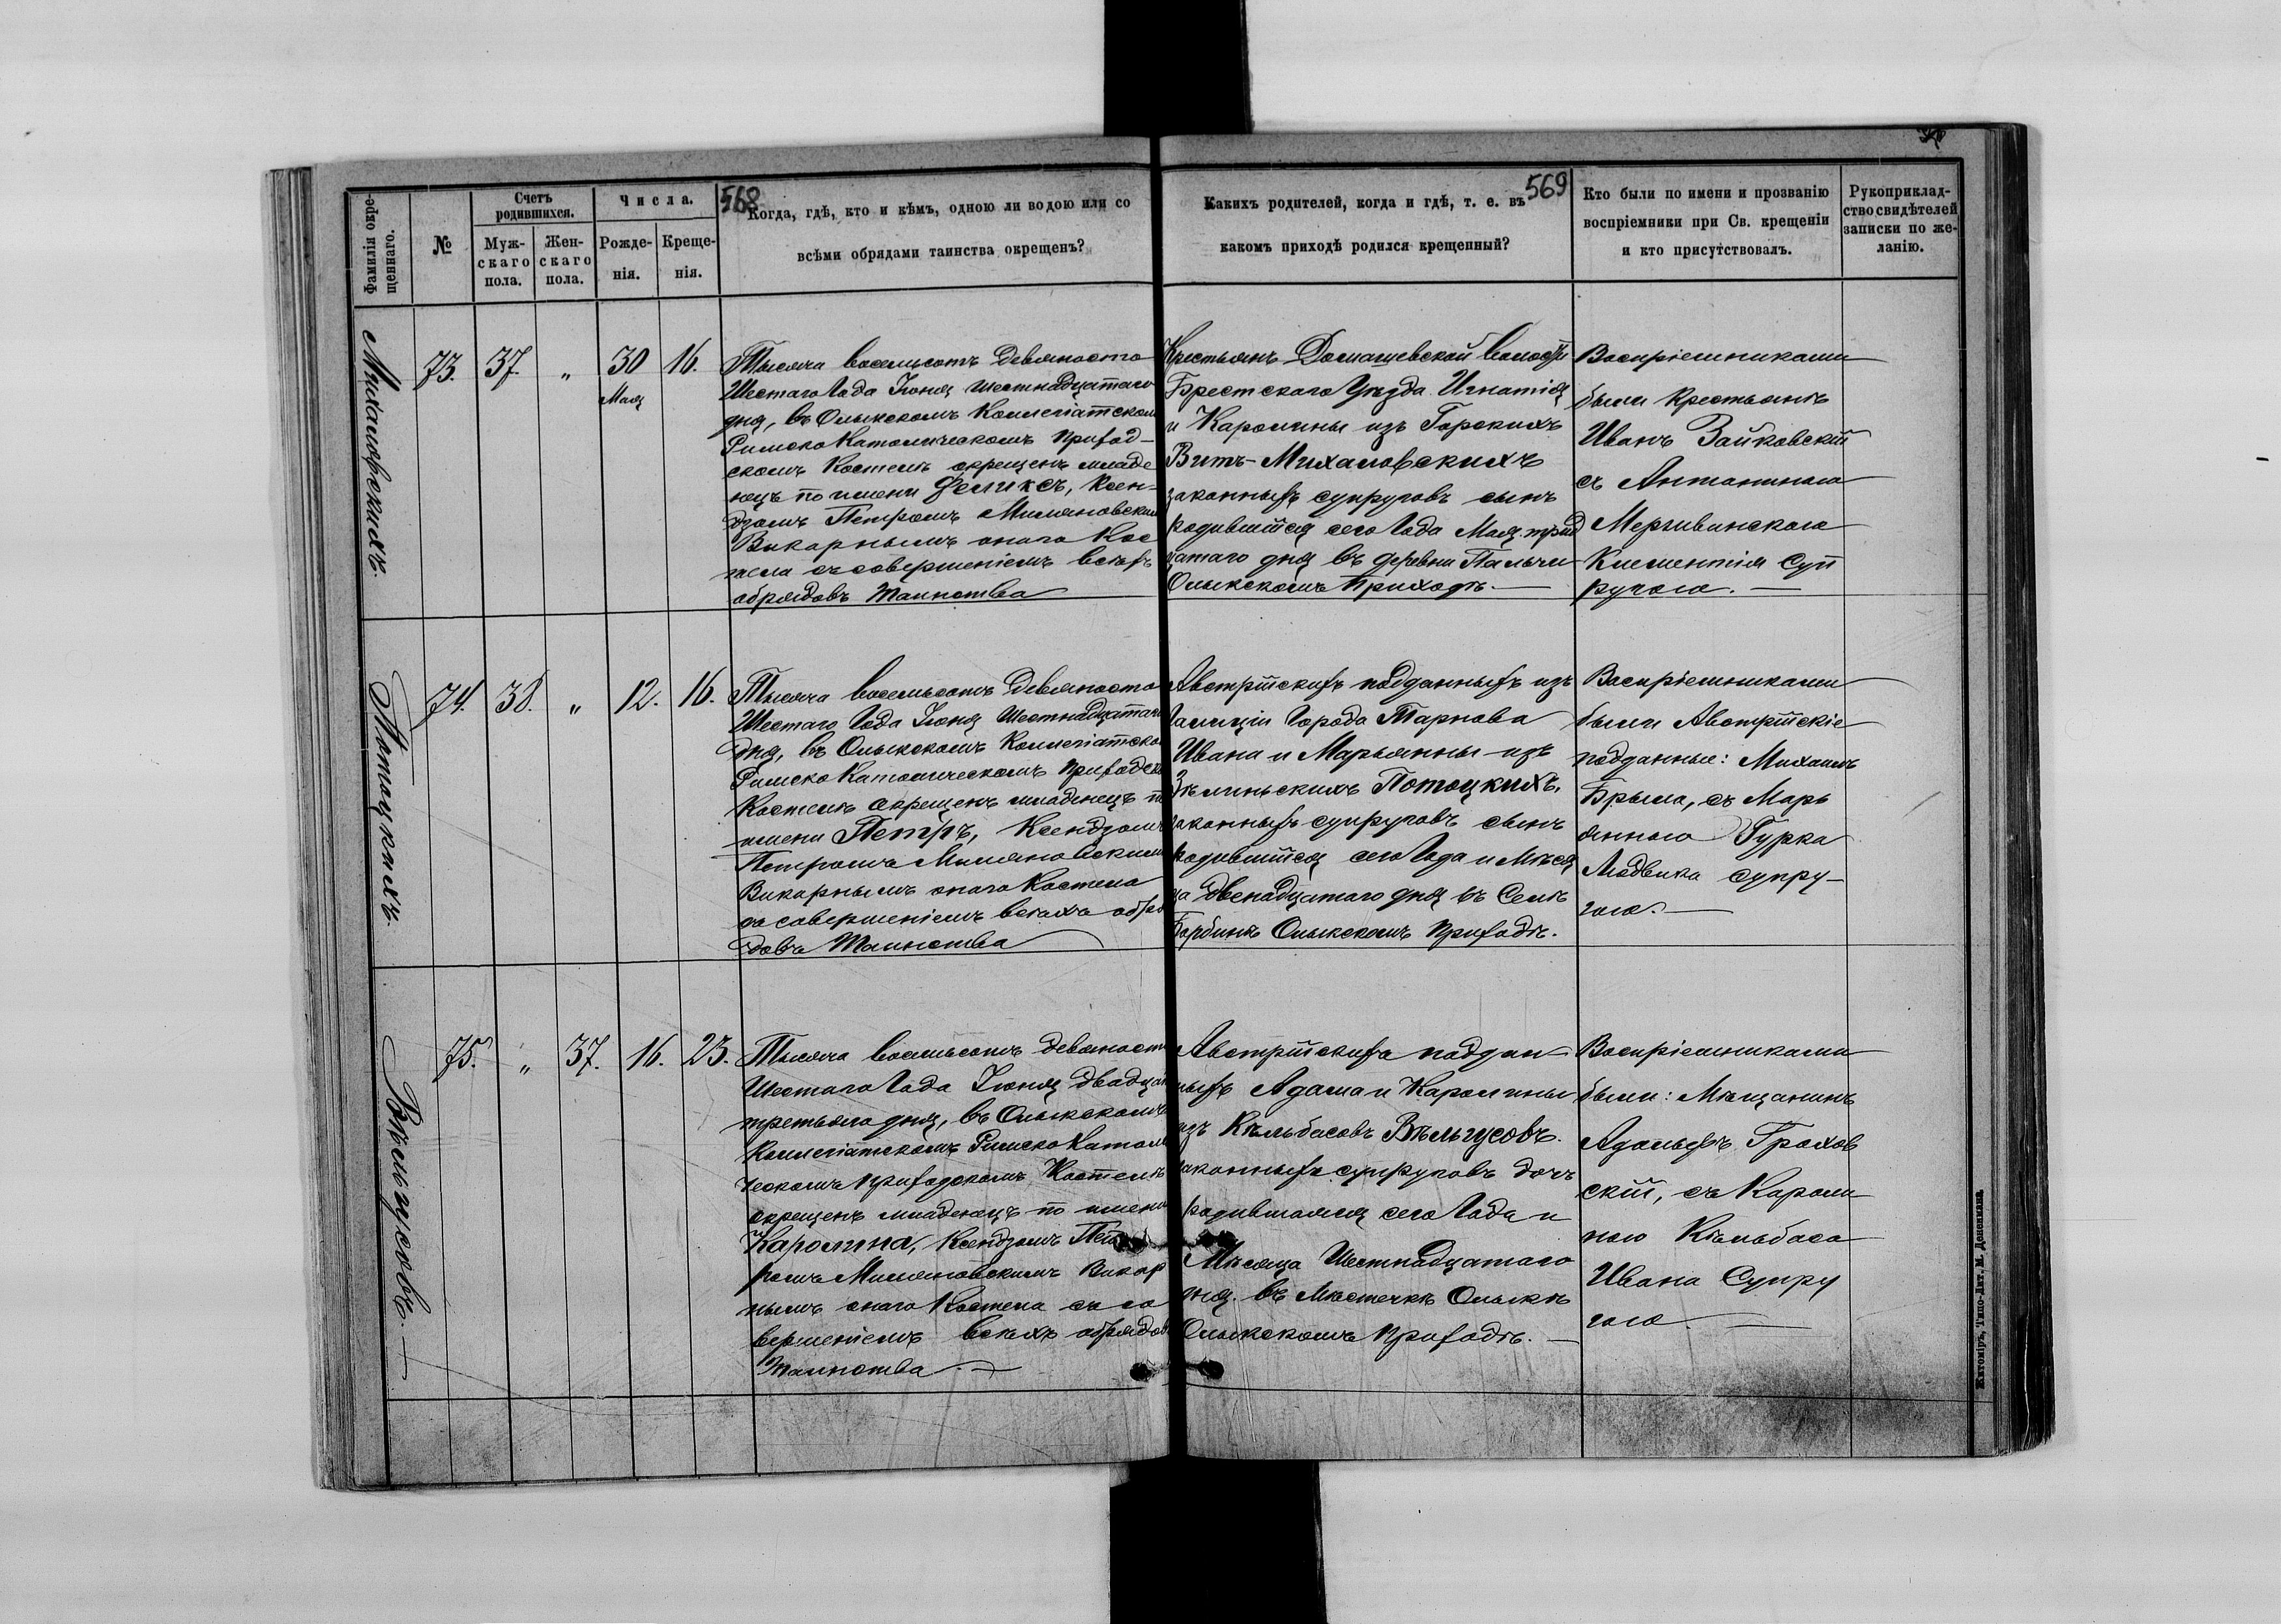 568
569
Фамилія окре-
щеннаго.
№
Счетъ
родившихся.
Муж-
скаго
пола.
Жен-
скаго
пола.
Числа.
Рожде-
нія.
Креще-
нія.
Когда, гдѣ, кто и кѣмъ, одною ли водою или со
всѣми обрядами таинства окрещенъ?
Какихъ родителей, когда и гдѣ, т. е. въ
какомъ приходѣ родился крещенный?
Кто были по имени и прозванію
воспріемники при Св. крещеніи
и кто присутствовалъ.
Рукоприклад-
ство свидѣтелей
записки по же-
ланію.
Михаловскихъ.
73. 37. „ 30 16.
Мая
Тысяча восемьсотъ девяносто
Шестаго Года Іюня шестнадцатаго
дня, въ Олыкскомъ Коллегіатском
Римско Католическомъ Приход-
скомъ Костелѣ окрещенъ младе
нецъ по имени Феликсъ, Ксен-
дзомъ Петромъ Миляновским
Викарнымъ онаго Кос
тела съ совершеніемъ всѣхъ
обрядовъ Таинства
Крестьянъ Домашевской волости
Брестскаго Уѣзда Игнатія
и Каролины изъ Горскихъ
Витъ-Михаловскихъ
законныхъ супруговъ сынъ
родившійся сего Года Мая трид
цатаго дня въ деревни Пальчи
Олыкскомъ Приходѣ.—
Воспріемниками
были Крестьянъ
Иванъ Зайковскій
съ Антониною
Мергивинскаго
Климентія Суп
ругою.—
Потоцкихъ.
74. 38. „ 12. 16.
Тысяча восемьсотъ девяносто
Шестаго Года Іюня Шестнадцатаго
дня, въ Олыкскомъ Коллегіатско
Римско Католическомъ Приходско
Костелѣ окрещенъ младенецъ по
имени Петръ, Ксендзомъ
Петромъ Миляновским
Викарнымъ онаго Костела
съ совершеніемъ всѣхъ обря
довъ Таинства
Австрійскихъ подданныхъ изъ
Галиціи Города Тарнова
Ивана и Марьянны изъ
Зѣлиньскихъ Потоцкихъ,
законныхъ супруговъ сынъ
родившійся сего Года и Мѣся
ца двенадцатаго дня въ Селѣ
Горбинѣ Олыкскомъ Приходѣ.
Воспріемниками
были Австрійскіе
подданные: Михаилъ
Брыла, съ Марь
янною Гурка
Людвика супру-
гою.—
Вѣльгусовъ.—
75. „ 37. 16. 23.
Тысяча восемьсотъ девяносто
Шестаго Года Іюня двадцать
третьяго дня, въ Олыкскомъ
Коллегіатскомъ Римско Катол
ческомъ Приходскомъ Костелѣ
окрещенъ младенецъ по имени
Каролина, Ксендзомъ Пет
ромъ Миляновскимъ Викар
нымъ онаго Костела съ со
вершеніемъ всѣхъ обрядов
Таинства.—
Австрійскихъ поддан-
ныхъ Адама и Каролины
изъ Кѣльбасовъ Вѣльгусовъ.
законныхъ супруговъ дочь
родившаяся сего Года и
Мѣсяца Шестнадцатаго
дня. въ Мѣстечкѣ Олыкѣ
Олыкскомъ Приходѣ.—
Воспріемниками
были: Мѣщанинъ
Адольфъ Грохов
скій, съ Кароли
ною Кѣльбаса
Ивана Супру
гою.—
Житоміръ, Типо-Лит. М. Дененмана.